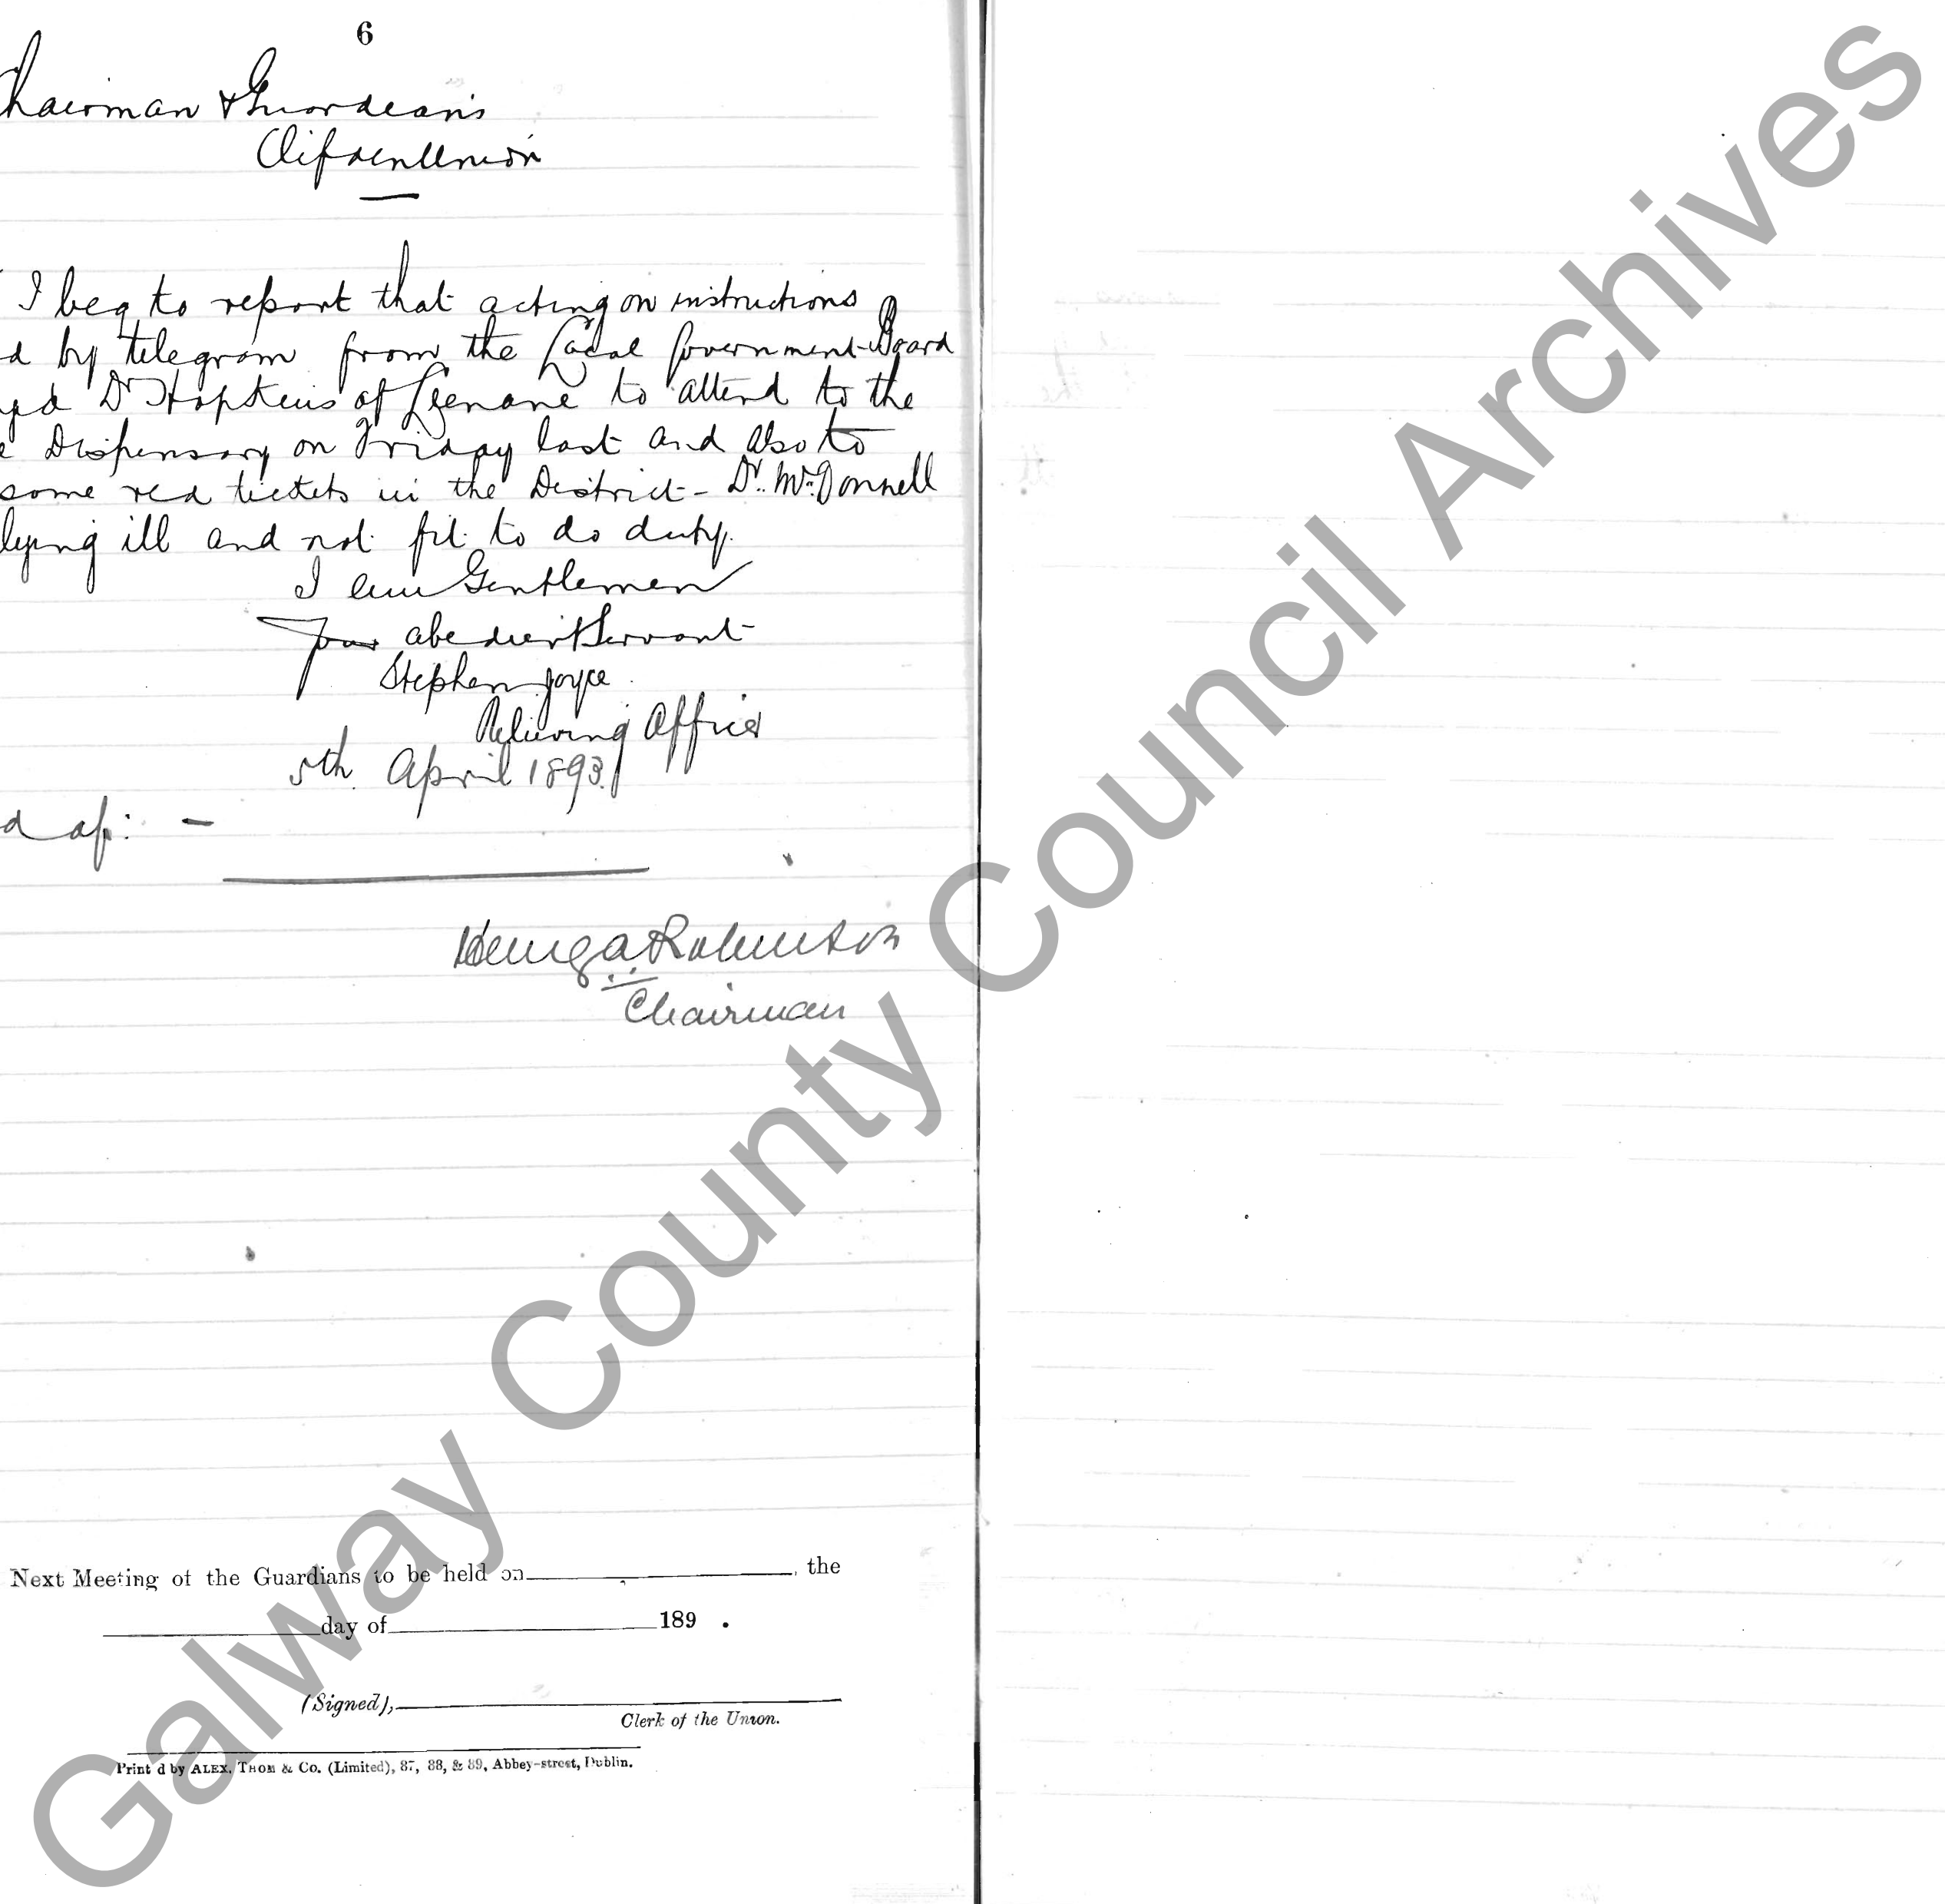 6
hairman & Guardians
Clifden Union
I beg to report that acting on instructions
d by telegram from the Local Government Board
yed Dr Hopkins of Leenane to attend to the
e Dispensary on Friday last and also to
some red tickets in the District - Dr. McDonnell
lying ill and not fit to do duty.
I am Gentlemen
Your obedient Servant
Stephen Joyce
Relieving Officer
5th April 1893
d of: -
Henry A Robinson
Chairman
Next Meeting of the Guardians to be held on , the
day of 189 .
(Signed),
Clerk of the Union.
Print d by ALEX. THOM & Co. (Limited), 87, 88, & 89, Abbey-street, Dublin.
Galway County Council Archives